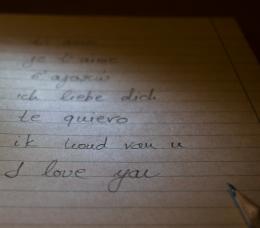 ti amo
je t'aime
s'agapώ
ich liebe dich
te quiero
ik houd van u
I love you